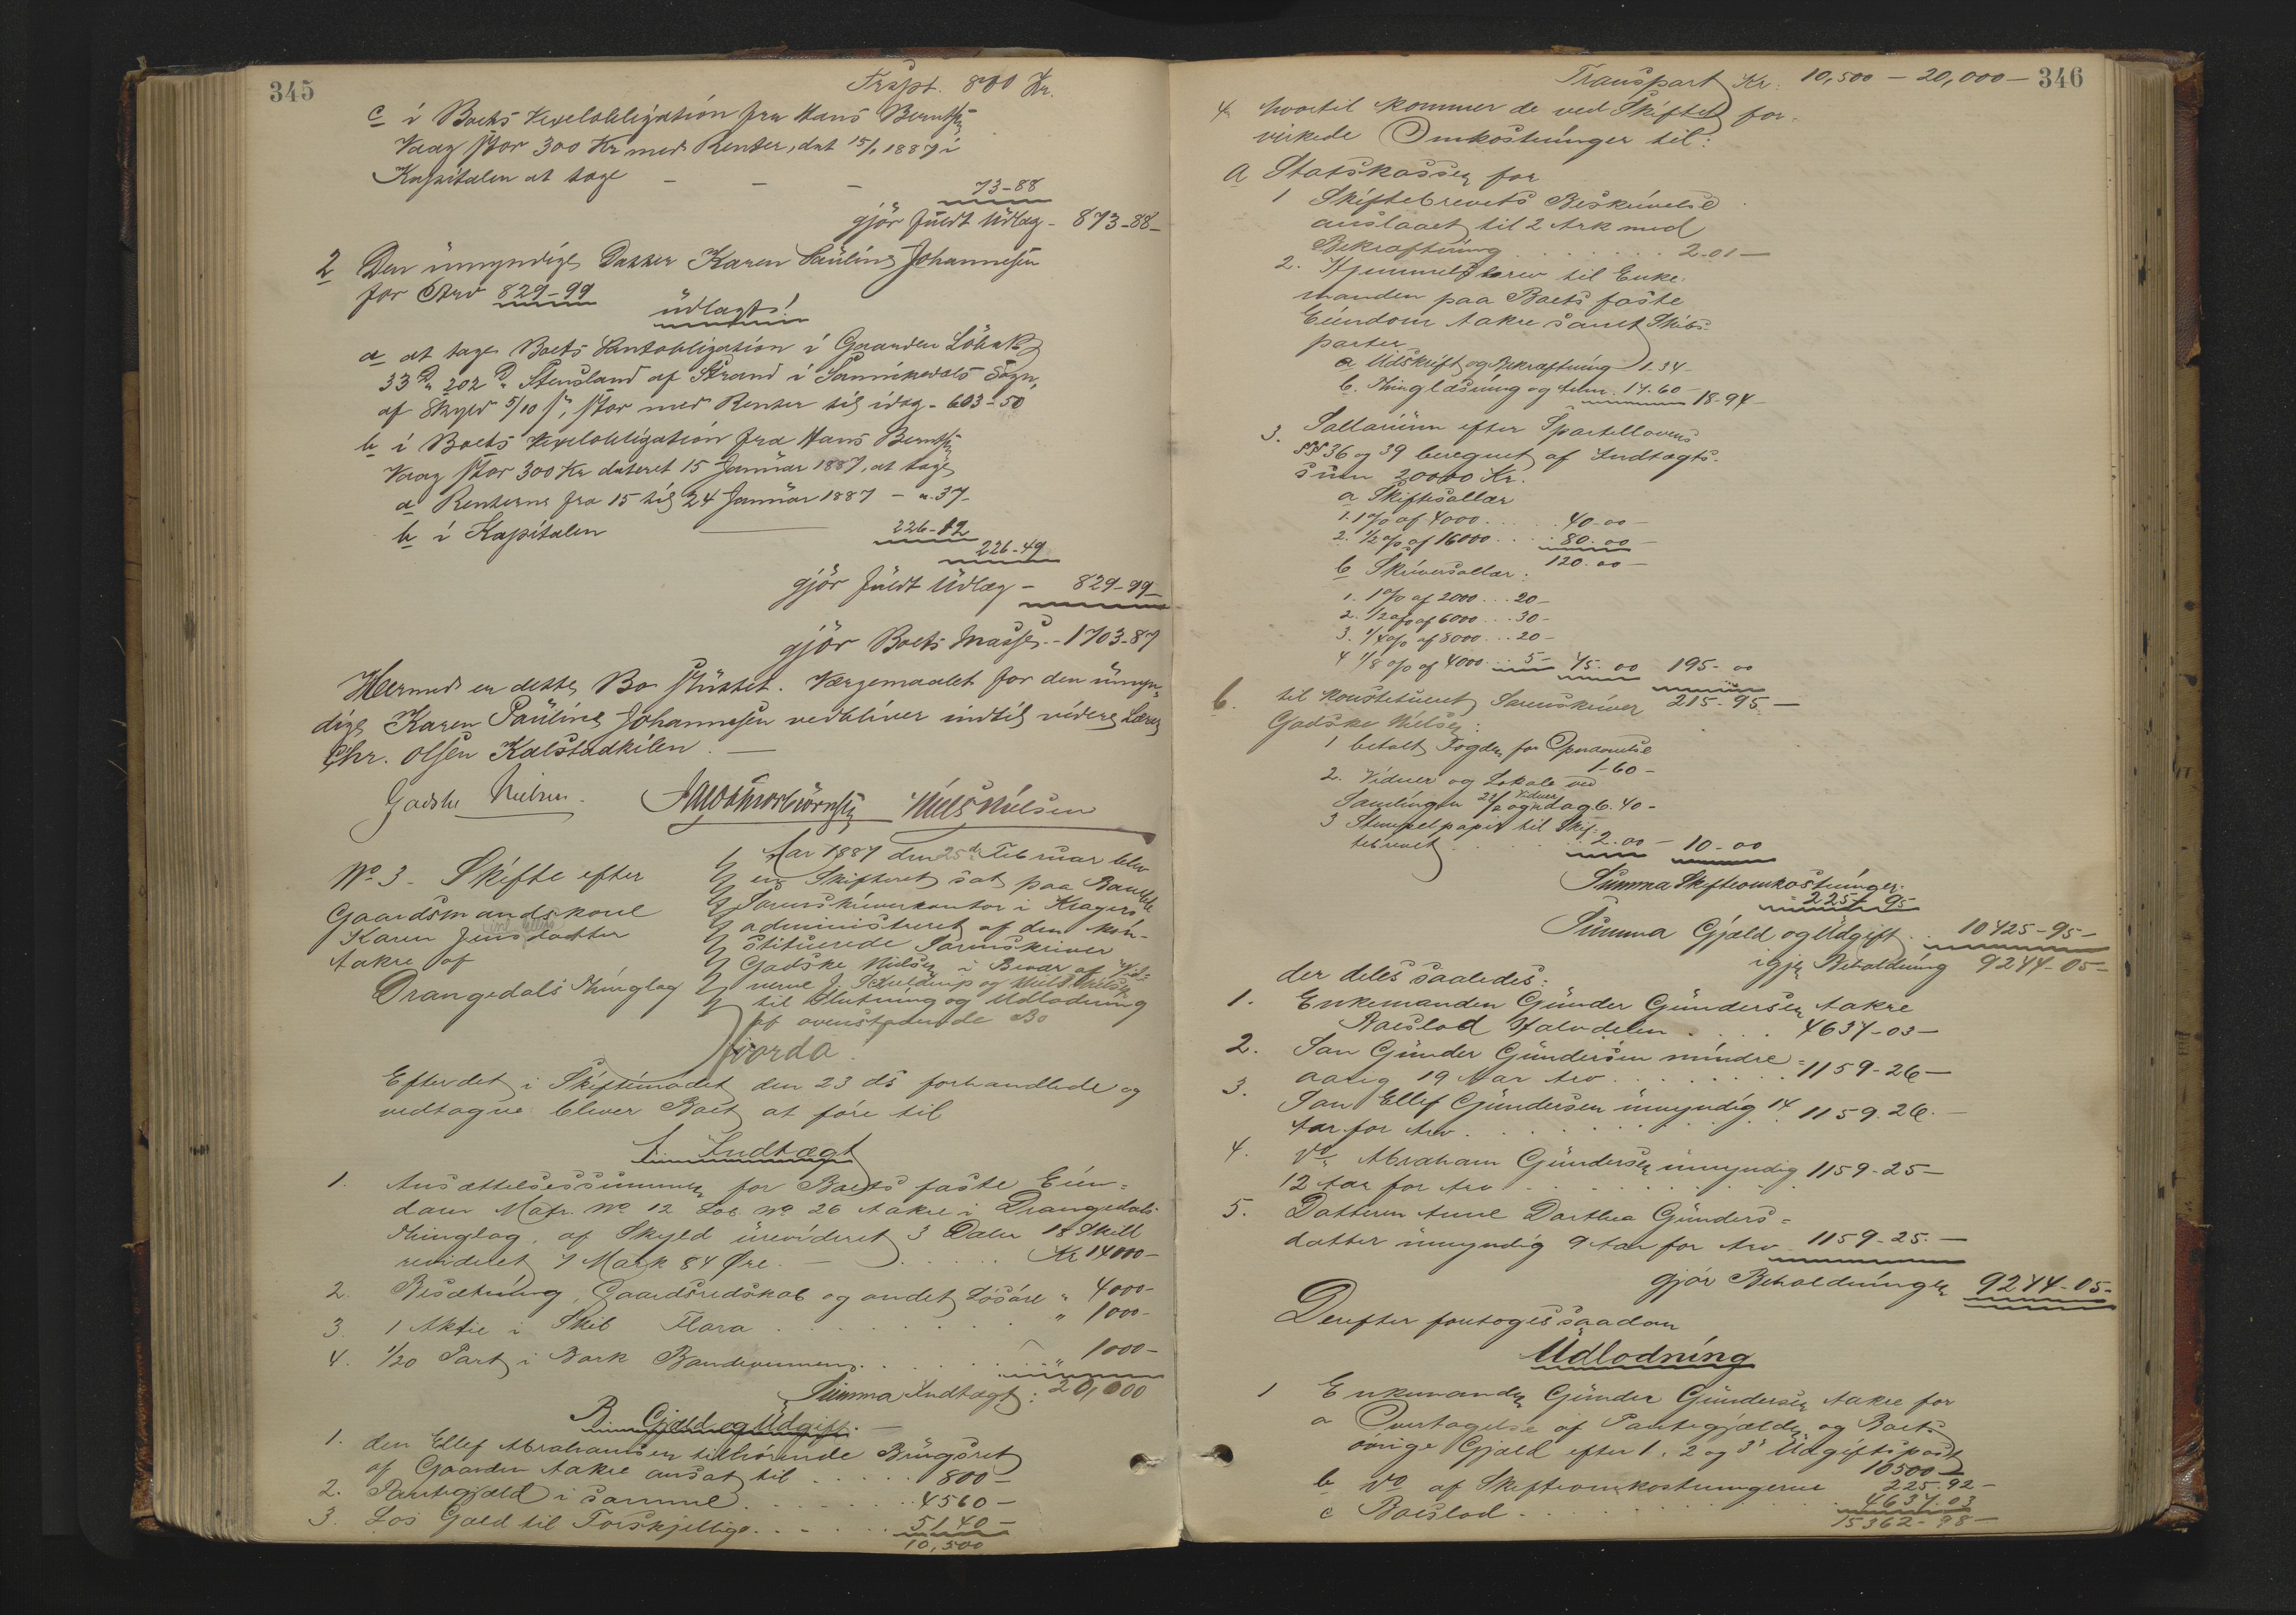 345
Trspt. 800 Kr.
c i Boets Vexelobligation fra Hans Berntsen
Vaag stor 300 Kr med Renter, dat 15/1 1887 i
Kapitalen at tage - - - 73-88
gjör fuldt Udlæg - 873-88-
2 Den umyndige Datter Karen Pauline Johannesen
for Arv 829-99
udlagts!
a at tage Boets Pantobligation i Gaarden Löbe No
33 a 202 a Stensland af Strand i Sannikedals Sogn,
af Skyld 5/10 ß, stor med Renter til idag - 603-50
b i Boets Vexelobligation fra Hans Berntsen
Vaag stor 300 Kr dateret 15 Januar 1887, at tage
a Renterne fra 15 til 24 Januar 1887 - ".37-
b i Kapitalen 226-12
226-49
gjör fuldt Udlæg - 829-99-
gjör Boets Masse. - 1703-87
Hermed er dette Bo sluttet. Værgemaalet for den umyn-
dige Karen Pauline Johannesen vedbliver indtil videre Lærer
Chr. Olsen Kalstadkilen. —
Gadske Nielsen. Niels Nielsen
No 3 - Skifte efter
Gaardsmandskone
Karen Jensdatter
Aakre af
Drangedals Thinglag
Aar 1887 den 25de Februar blev
en Skifteret sat paa Bamble
Sorenskriverkontor i Kragerö
administreret af den kon-
stituerede Sorenskriver
Gadske Nielsen i Bevær af Vid-
nerne J. Kuldrup og Niels Nielsen
til Slutning og Udlodning
af ovenstaaende Bo
hvorda.
Efter det i Skiftemödet den 23 ds forhandlede og
vedtagne bliver Boet at före til
A. Indtægt
1. Ansættelsessummen for Boets faste Eien-
dom Matr. No 12 Löb. No 26 Aakre i Drangedals
Thinglag, af Skyld urevideret 3 Daler 18 Skill
revideret 7 Mark 84 Øre. - . . . . . Kr 14000-
2. Besætning, Gaardsredskab og andet Lösöre " 4000-
3. 1 Aktie i Skib Flora . . . . . " 1000-
4. 1/20 Part i Bark Bondevennen . . . . " 1000-
Summa Indtægt: 20,000
B. Gjæld og Udgift. —
1. den Ellef Abrahamsen tilhörende Bygsret
af Gaarden Aakre ansat til . . . . . 800-
2. Pantegjæld i samme . . . . . 4560-
3. Lös Gæld til Forskjellige . . . . . 5140-
10,500
346
Transport Kr. 10,500 - 20,000-
4 hvortil kommer de ved Skiftet for-
virkede Omkostninger til:
A Statskassen for
1 Skiftebrevets Beskrivelse
anslaaet til 2 Ark med
Bekræftning . . . . . 2-01-
2. Hjemmelsbrev til Enke-
manden paa Boets faste
Eiendom Aakre samt Skibs-
parter
a Udskrift og Bekræftning 1.34-
b. Thinglæsning og Anm. 17.60- 18-94-
3. Sallarium efter Sportellovens
§§ 36 og 39 beregnet af Indtægts-
sum 20000 Kr.
a Skiftesallar
1. 1% af 4000 . . . . 40-00-
2. 1/2% af 16000 . . . . 80.00-
120.00-
b Skriversallar:
1. 1% af 2000 . . . 20-
2. 1/2% af 6000 . . . 30-
3. 1/4% af 8000 . . . 20-
4 1/8% af 4000 . . . 5- 75.00 195-00
215-95-
b. til konstitueret Sorenskriver
Gadske Nielsen:
1 betalt Fogden for Opnævnelse
1-60-
2. Vidner og Lokale ved
Samlingen 22/2 og idag 6.40-
Vidner
3 Stempelpapir til Skif-
tebrevet . . . . . 2.00- 10-00
Summa Skifteomkostninger.
225-95
Summa Gjæld og Udgift . . 10725-95-
igjen Beholdning 9274-05-
der deles saaledes:
1. Enkemanden Gunder Gundersen Aakre
Boeslod Halvdelen . . . . 4637-03-
2. Sön Gunder Gundersen mindre-
aarig 19 Aar Arv . . . . . 1159-26-
3. Sön Ellef Gundersen umyndig 14
Aar for Arv . . . . . 1159.26.-
4. Do Abraham Gundersen umyndig
12 Aar for Arv . . . . . 1159-25-
5. Datteren Anne Dorthea Gunders-
datter umyndig 9 Aar for Arv 1159-25.-
gjör Beholdningen 9274-05-
Derefter foretoges saadan
Udlodning
1 Enkemanden Gunder Gundersen Aakre for
a Overtagelse af Pantegjælden og Boets
övrige Gjæld efter 1. 2 og 3 Udgiftspost
10500-
b Do af Skifteomkostningerne 225.92-
c Boeslod . . . . . 4637.03
15362-98-